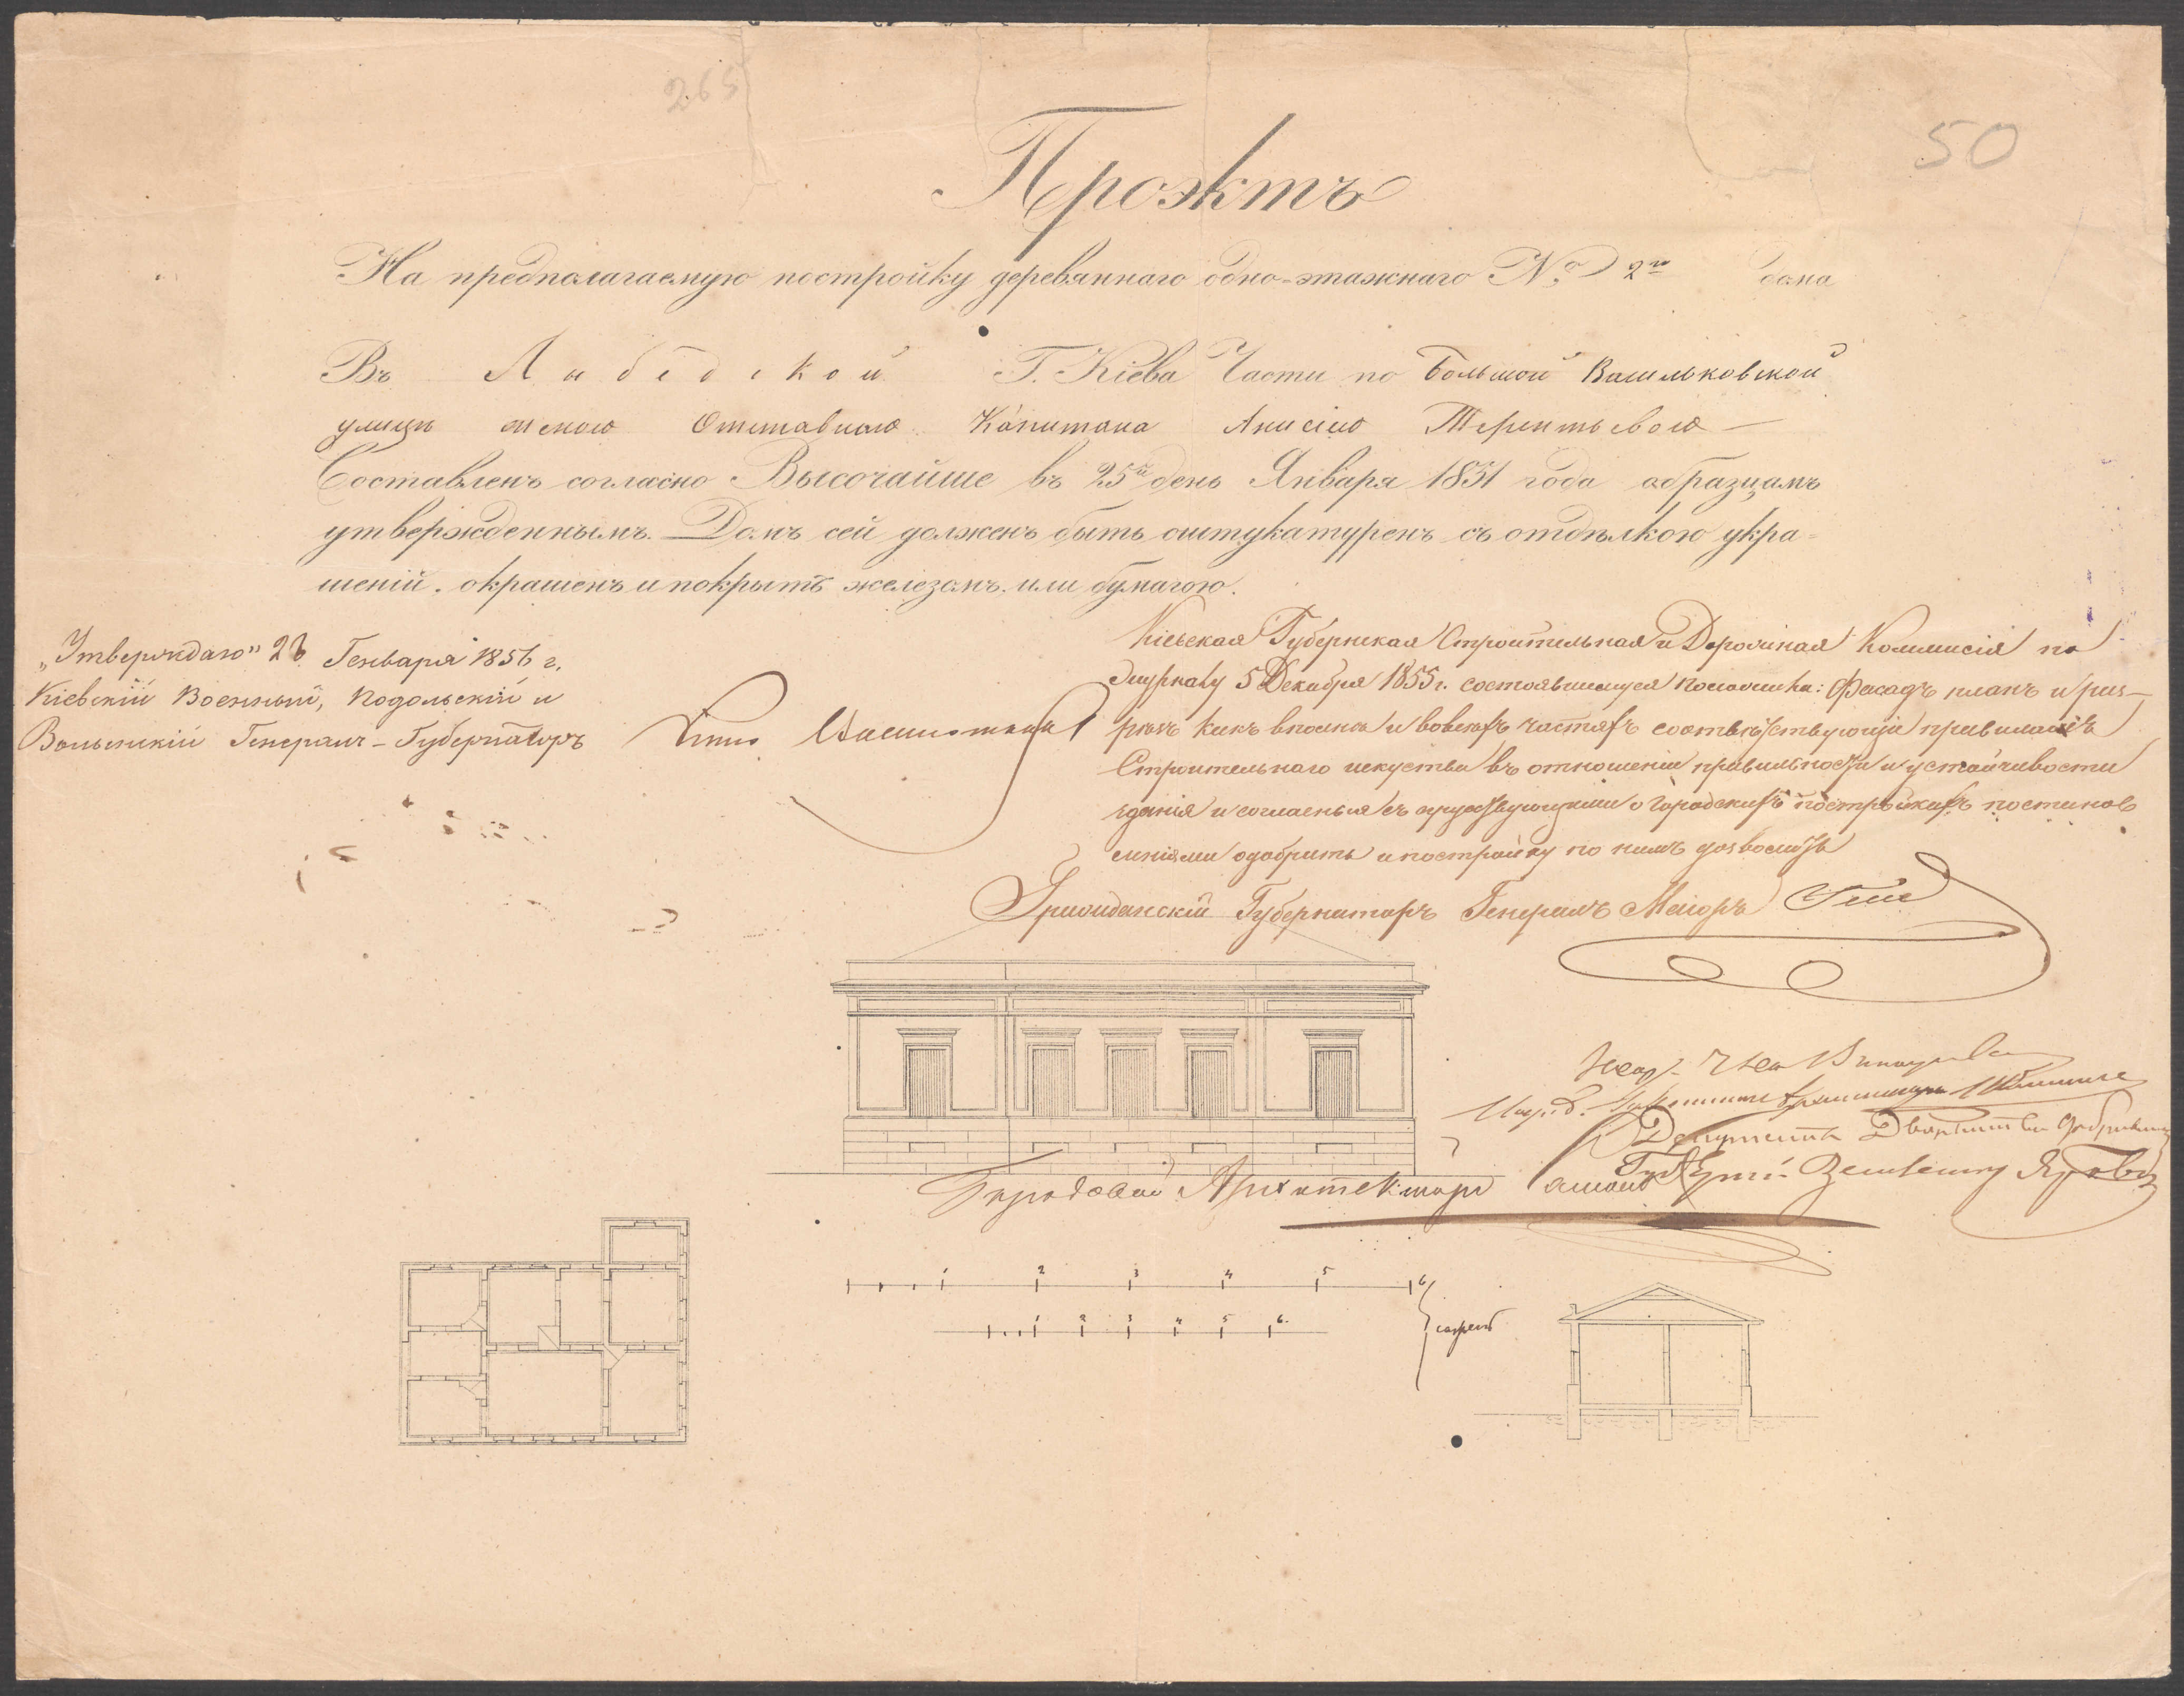 265
50
Проэктъ
На предполагаемую постройку деревяннаго одно-этажнаго № 2го дома
Въ Лыбедской Г. Кіева Части по Большой Васильковской
улицѣ женою Отставнаго Капитана Анисіею Терентьевою
Составленъ согласно Высочайше въ 25й день Января 1851 года образцамъ
утвержденнымъ. Домъ сей долженъ быть оштукатуренъ съ отдѣлкою укра=
шеній. окрашенъ и покрытъ железомъ или бумагою.
„Утверждаю" 26 Генваря 1856 г.
Кіевскій Военный, Подольскій и
Волынскій Генералъ-Губернаторъ Князь Васильчиковъ
Кіевская Губернская Строительная и Дорожная Коммисія по
журналу 5 Декабря 1855 г. состоявшемуся положила: Фасадъ планъ и раз-
рѣзъ какъ вполнѣ и во всѣхъ частяхъ соотвѣтствующіе правиламъ
Строительнаго искуства въ отношеніи правильности и устойчивости
зданія и согласные съ существующими о Городскихъ постройкахъ постанов
леніями одобрить и постройку по нимъ дозволить
Гражданскій Губернаторъ Генералъ Маіоръ Гессе
Депутатъ Дворянства
Городовой Архитекторъ
1 2 3 4 5 6
1 2 3 4 5 6
сажень